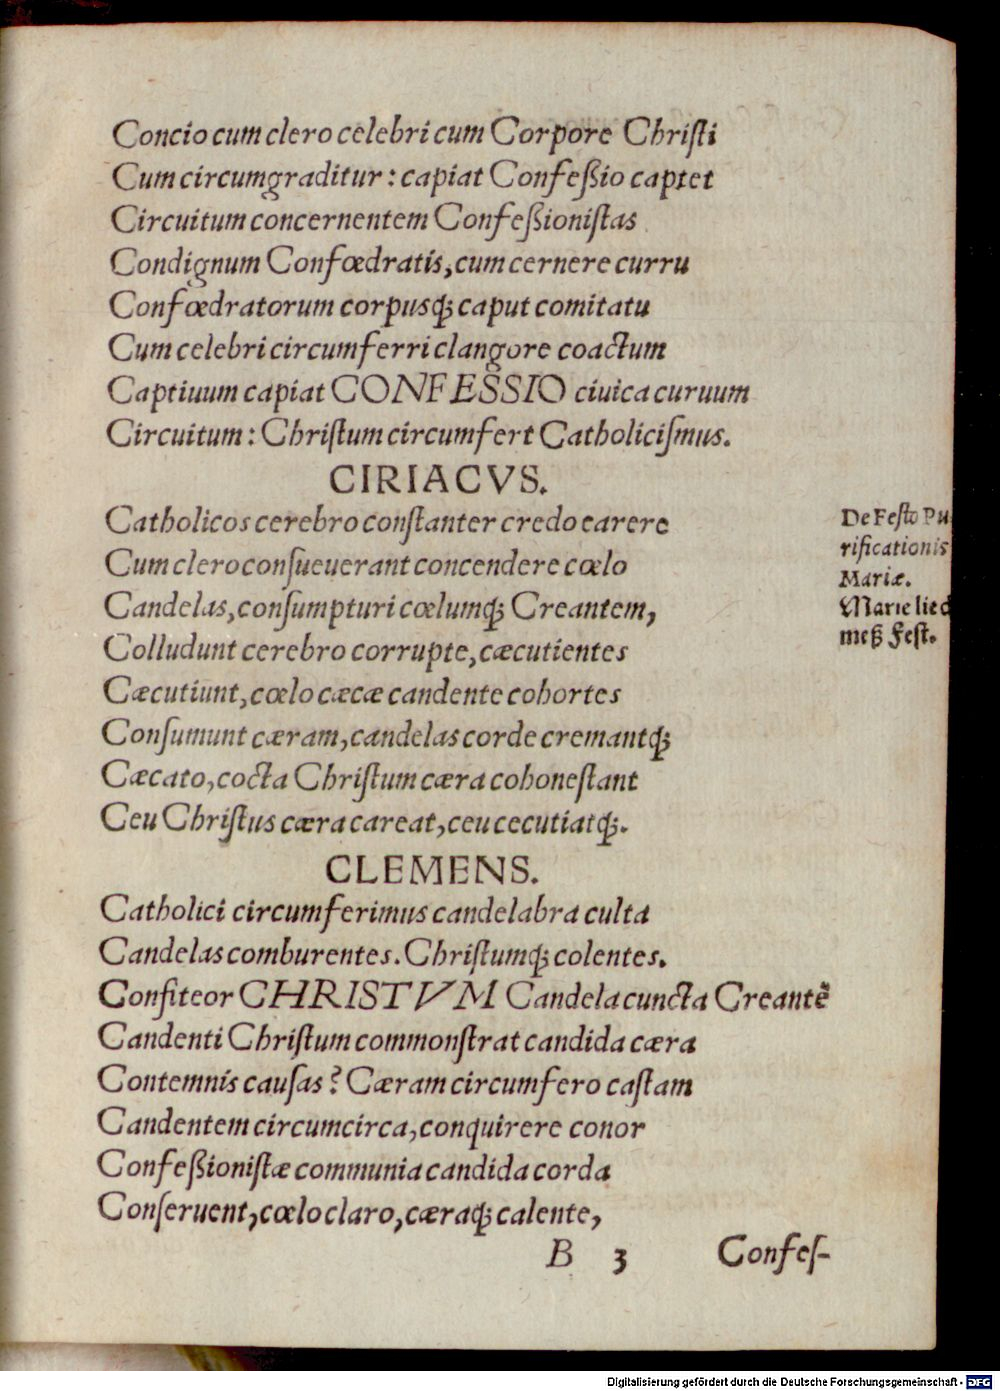 Concio cum clero celebri cum Corpore Chriſti
Cum circumgraditur: capiat Confeßio captet
Circuitum concernentem Confeßioniſtas
Condignum Confœdratis, cum cernere curru
Confœdratorum corpusq́; caput comitatu
Cum celebri circumferri clangore coactum
Captiuum capiat CONFESSIO ciuica curuum
Circuitum: Chriſtum circumfert Catholiciſmus.
CIRIACVS.
Catholicos cerebro conſtanter credo carere
Cum clero conſueuerant concendere cœlo
Candelas, conſumpturi cœlumq́; Creantem,
Colludunt cerebro corrupte, cæcutientes
Cæcutiunt, cœlo cæcæ candente cohortes
Conſumunt cæram, candelas corde cremantq́;
Cæcato, cocta Chriſtum cæra cohoneſtant
Ceu Chriſtus cæra careat, ceu cecutiatq́;.
De Feſto Pu
rificationis
Mariæ.
Marie lied
meß Feſt.
CLEMENS.
Catholici circumferimus candelabra culta
Candelas comburentes. Chriſtumq́; colentes.
Confiteor CHRISTVM Candela cuncta Creantē
Candenti Chriſtum commonſtrat candida cæra
Contemnis cauſas? Cæram circumfero caſtam
Candentem circumcirca, conquirere conor
Confeßioniſtæ communia candida corda
Conſeruent, cœlo claro, cæraq́; calente,
B 3 Confeſ-
Digitalisierung gefördert durch die Deutsche Forschungsgemeinschaft - DFG